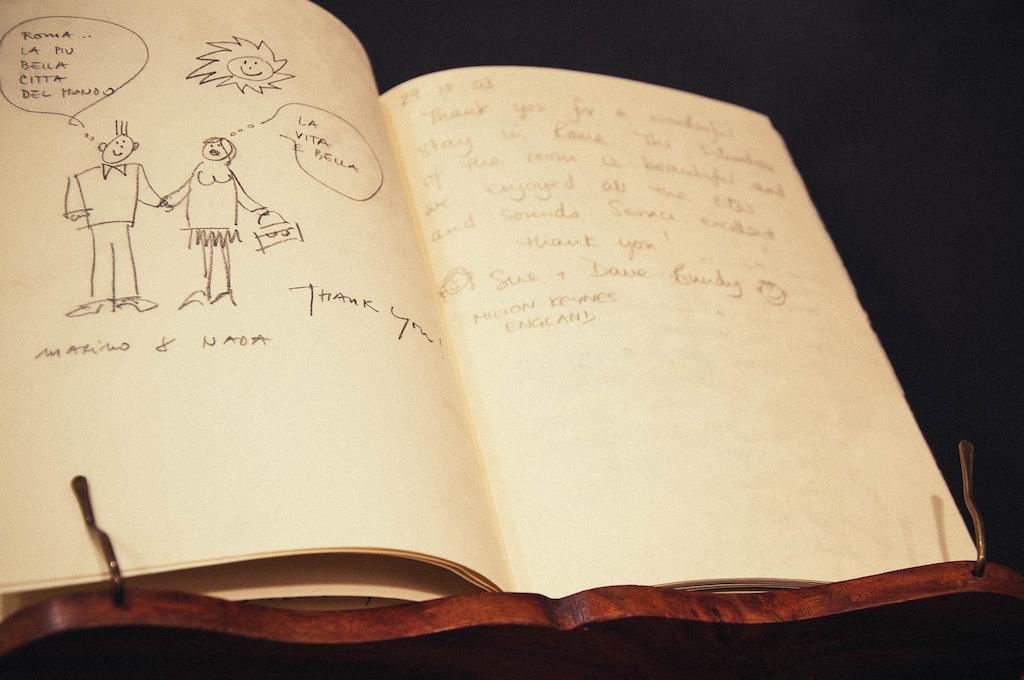 ROMA...
LA PIU
BELLA
CITTA
DEL MONDO
LA
VITA
E BELLA
THANK YOU!
MARINO & NADA
29 10 03
Thank you for a wonderful
stay in Rome The Situation
of the room is beautiful and
we enjoyed all the sites
and sounds. Service excellent.
Thank you!
Sue + Dave Bundy
MILTON KEYNES
ENGLAND.